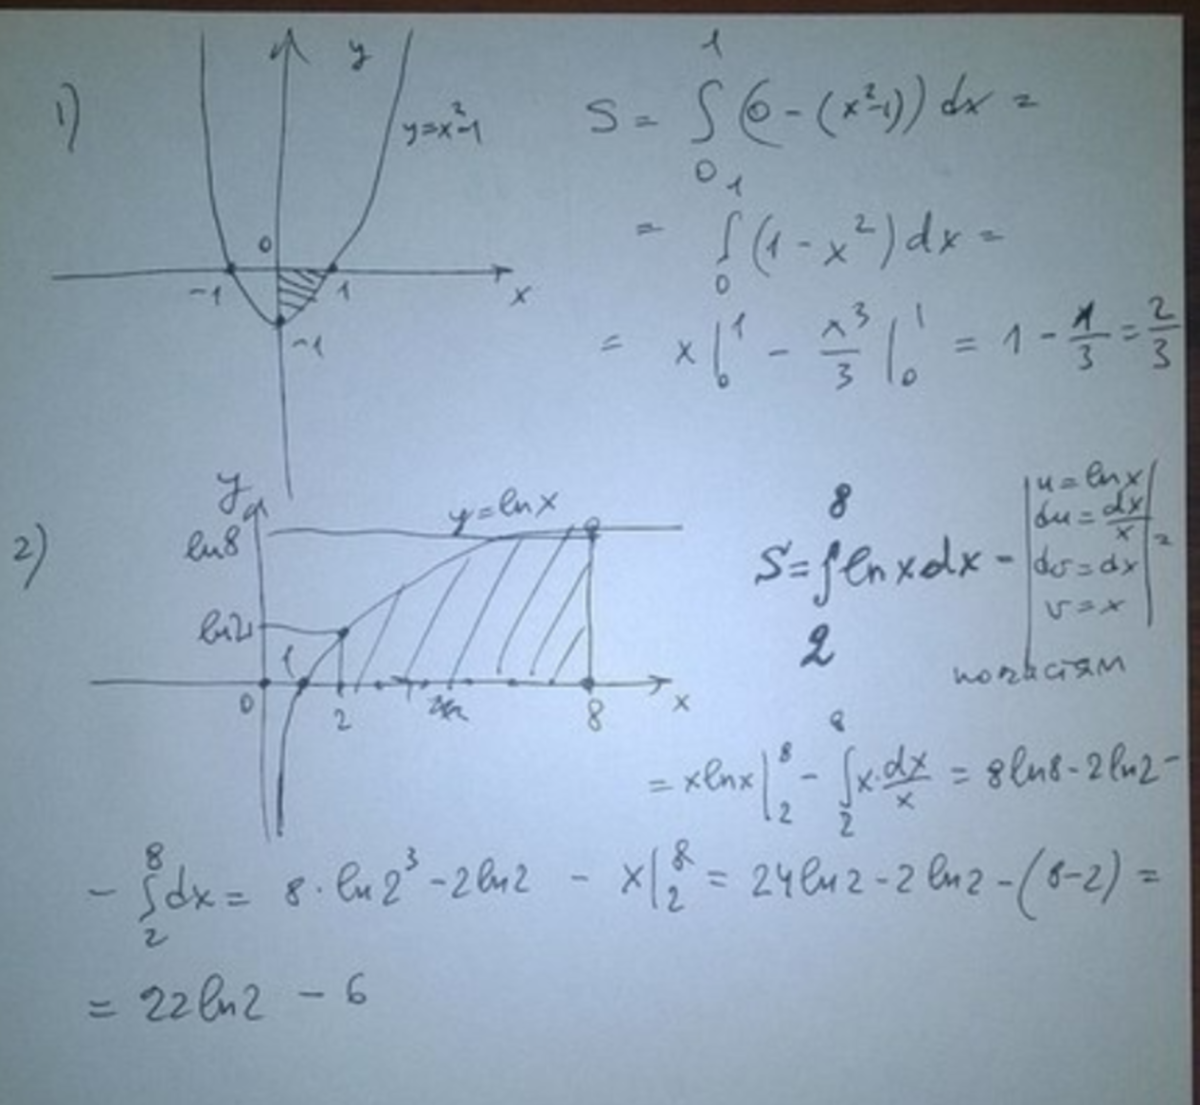 1)
y
y=x²-1
0
-1
1
x
-1
S = ∫₀¹ (0 - (x²-1)) dx =
= ∫₀¹ (1 - x²) dx =
= x|₀¹ - x³/3 |₀¹ = 1 - 1/3 = 2/3
2)
y
y=lnx
ln8
ln2
1
0
2
8
x
S = ∫₂⁸ ln x dx -
u = ln x
du = dx/x
dv = dx
v = x
=
= x ln x |₂⁸ - ∫₂⁸ x · dx/x = 8 ln8 - 2 ln2 -
- ∫₂⁸ dx = 8 · ln2³ - 2 ln2 - x|₂⁸ = 24 ln2 - 2 ln2 - (8-2) =
= 22 ln2 - 6